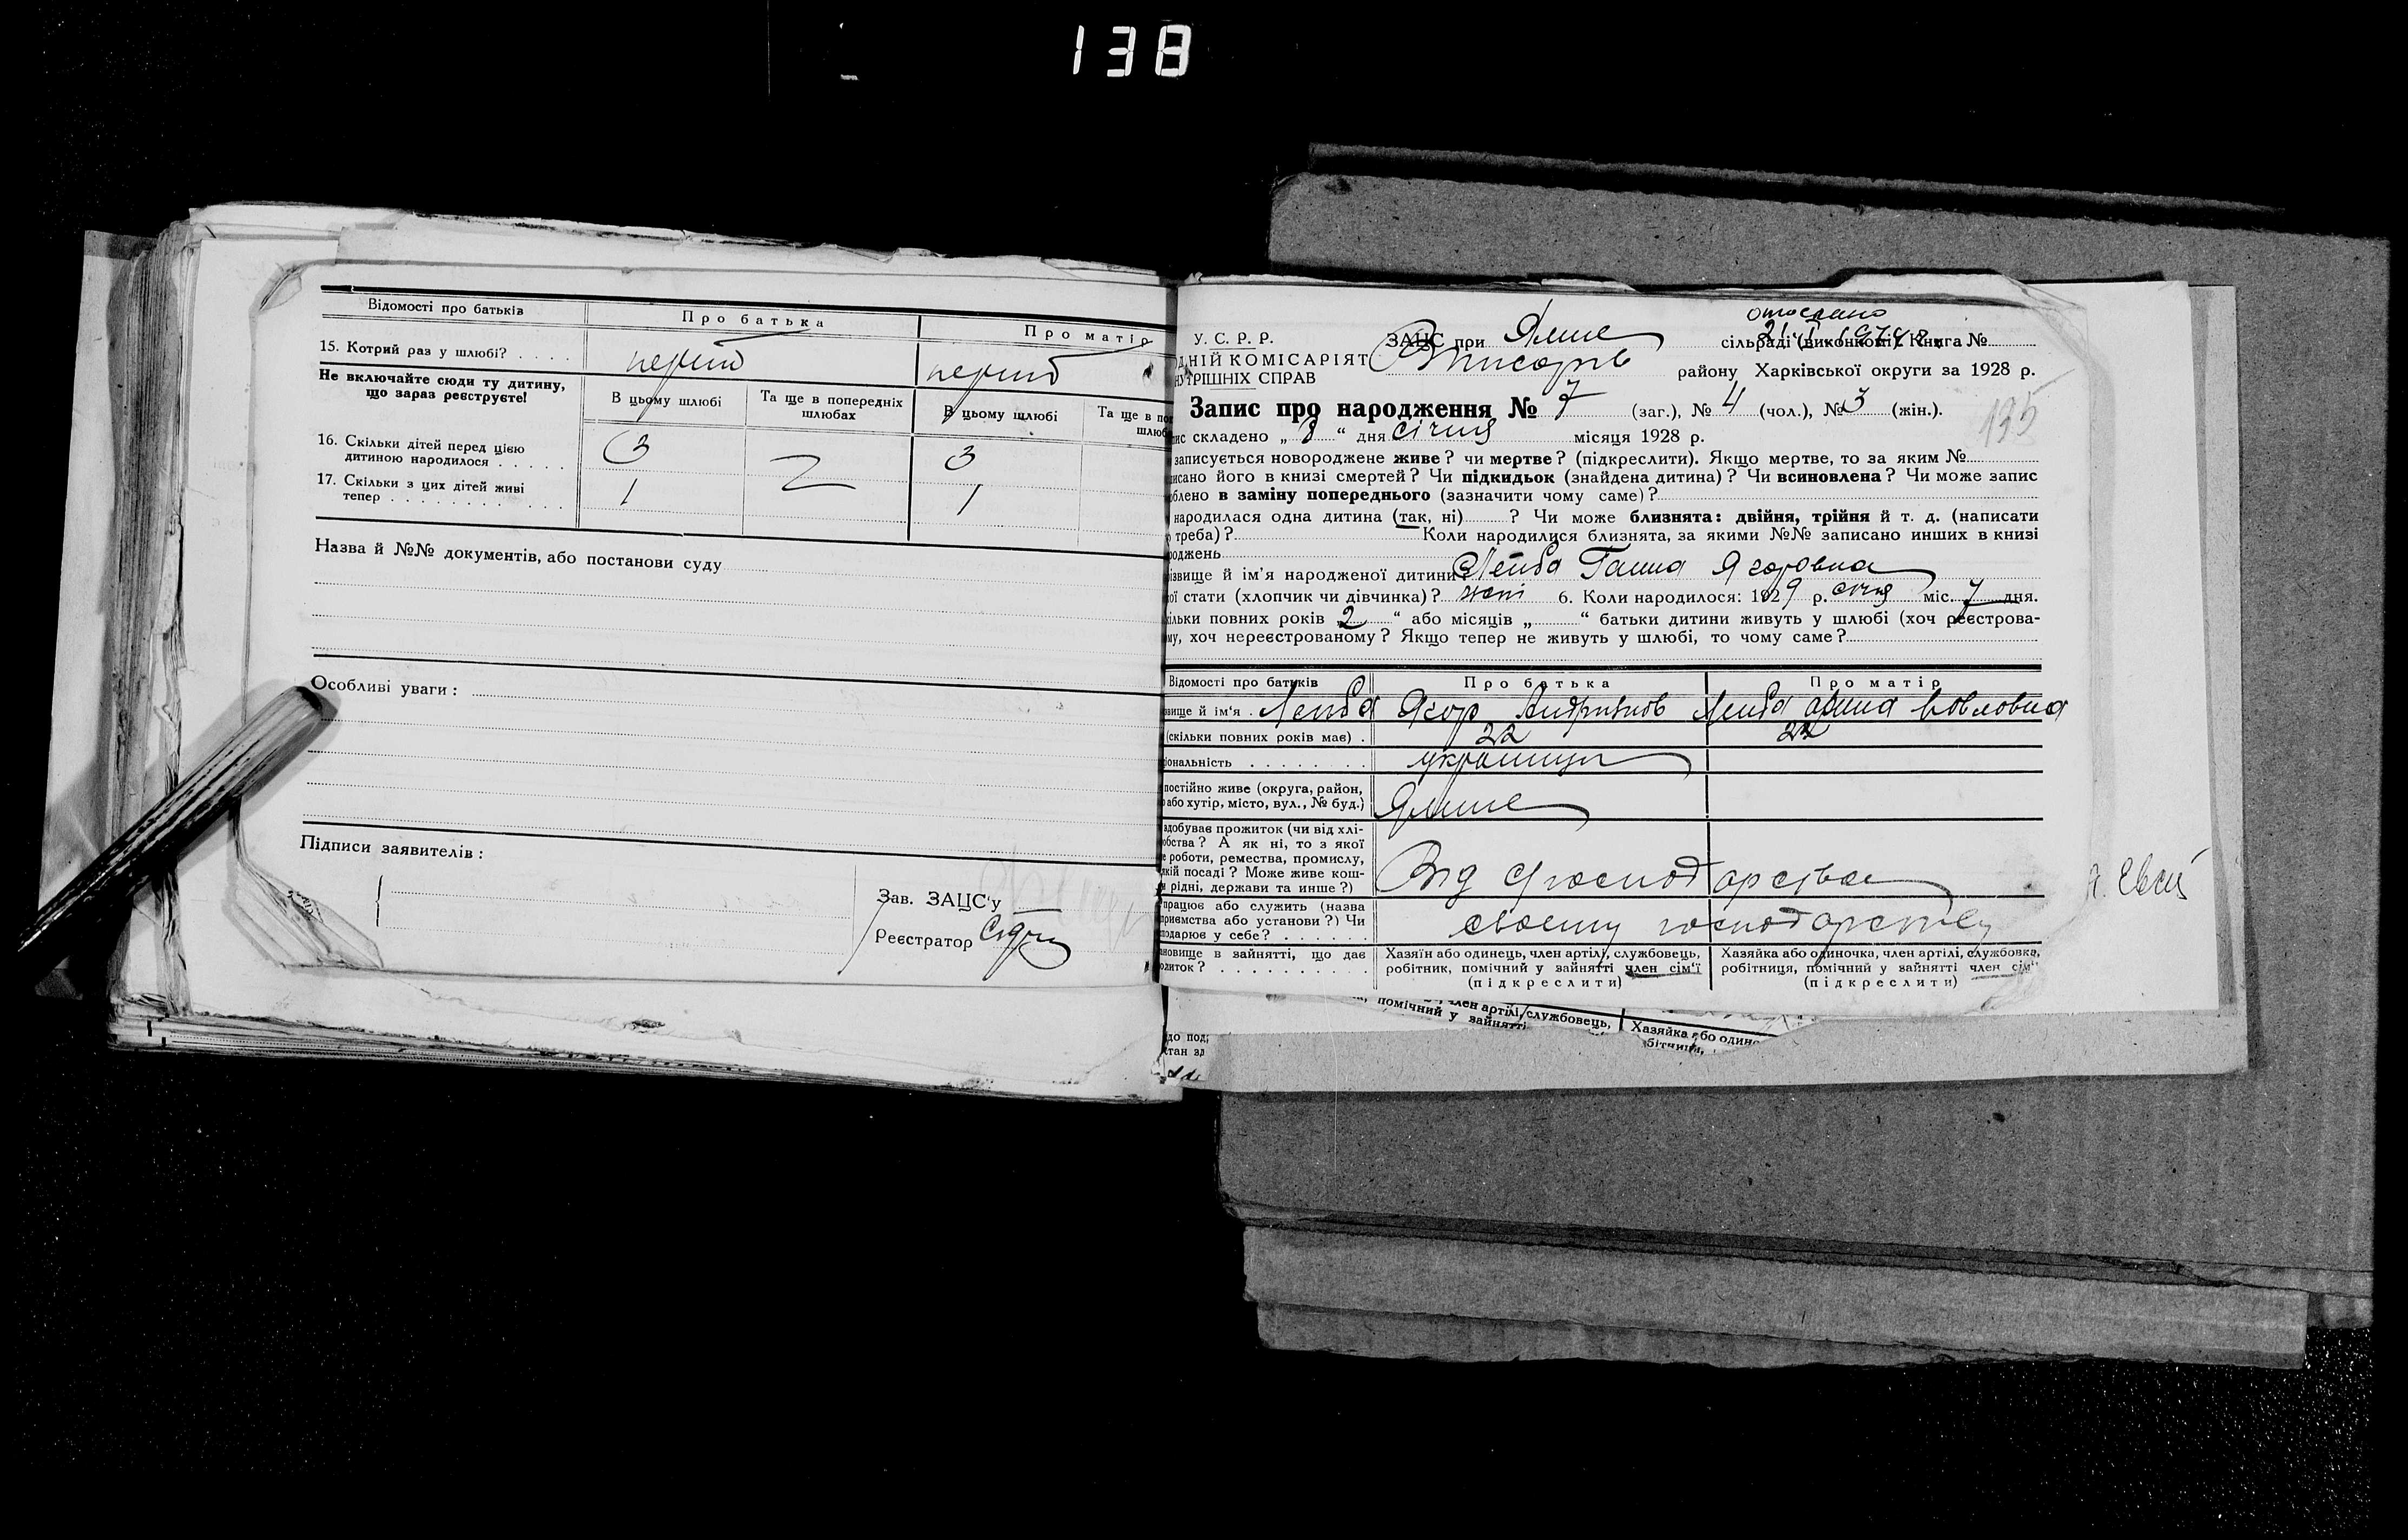 138
Відомості про батьків
Про батька
Про матір
15. Котрий раз у шлюбі? . . . .
перший
перший
Не включайте сюди ту дитину,
що зараз реєструєте!
В цьому шлюбі
Та ще в попередніх
шлюбах
В цьому шлюбі
Та ще в по
шлюб
16. Скільки дітей перед цією
дитиною народилося . . . . .
3
3
17. Скільки з цих дітей живі
тепер . . . . . . . . . . .
1
1
Назва й №№ документів, або постанови суду
Особливі уваги :
Підписи заявителів :
Зав. ЗАЦС'у
Реєстратор
У. С. Р. Р.
ДНІЙ КОМІСАРІЯТ
НУТРІШНІХ СПРАВ
отослано
ЗАЦС при
сільраді (виконкомі) Книга №
району Харківської округи за 1928 р.
Запис про народження № 7 (заг.), № 4 (чол.), № 3 (жін.).
135
ис складено „ 8 “ дня січня місяця 1928 р.
записується новороджене живе? чи мертве? (підкреслити). Якщо мертве, то за яким №
писано його в книзі смертей? Чи підкидьок (знайдена дитина)? Чи всиновлена? Чи може запис
блено в заміну попереднього (зазначити чому саме)?
народилася одна дитина (так, ні) ? Чи може близнята: двійня, трійня й т. д. (написати
треба)? Коли народилися близнята, за якими №№ записано инших в книзі
роджень
ізвище й ім'я народженої дитини? Ганна Ягоровна
ої стати (хлопчик чи дівчинка)? жін 6. Коли народилося: 1929 р. січня міс. 7 дня.
ільки повних років 2 “ або місяців „ “ батьки дитини живуть у шлюбі (хоч реєстрова-
му, хоч нереєстрованому? Якщо тепер не живуть у шлюбі, то чому саме?
Відомості про батьків
Про батька
Про матір
звище й ім'я . Ягор
(скільки повних років має) . 22
22
іональність . . . . . . . .
українці
постійно живе (округа, район,
або хутір, місто, вул., № буд.)
здобуває прожиток (чи від хлі-
обства? А як ні, то з якої
е роботи, ремества, промислу,
якій посаді? Може живе кош-
и рідні, держави та инше?)
Від господарства
працює або служить (назва
приємства або установи?) Чи
подарює у себе? . . . . . .
своєму господарстві
новище в зайнятті, що дає
олиток? . . . . . . . . . .
Хазяїн або одинець, член артілі, службовець,
робітник, помічний у зайнятті член сім'ї
(підкреслити)
Хазяйка або одиночка, член артілі, службовка,
робітниця, помічний у зайнятті член сім'ї
(підкреслити)
член артілі, службовець,
помічний у зайнятті
Хазяйка або один